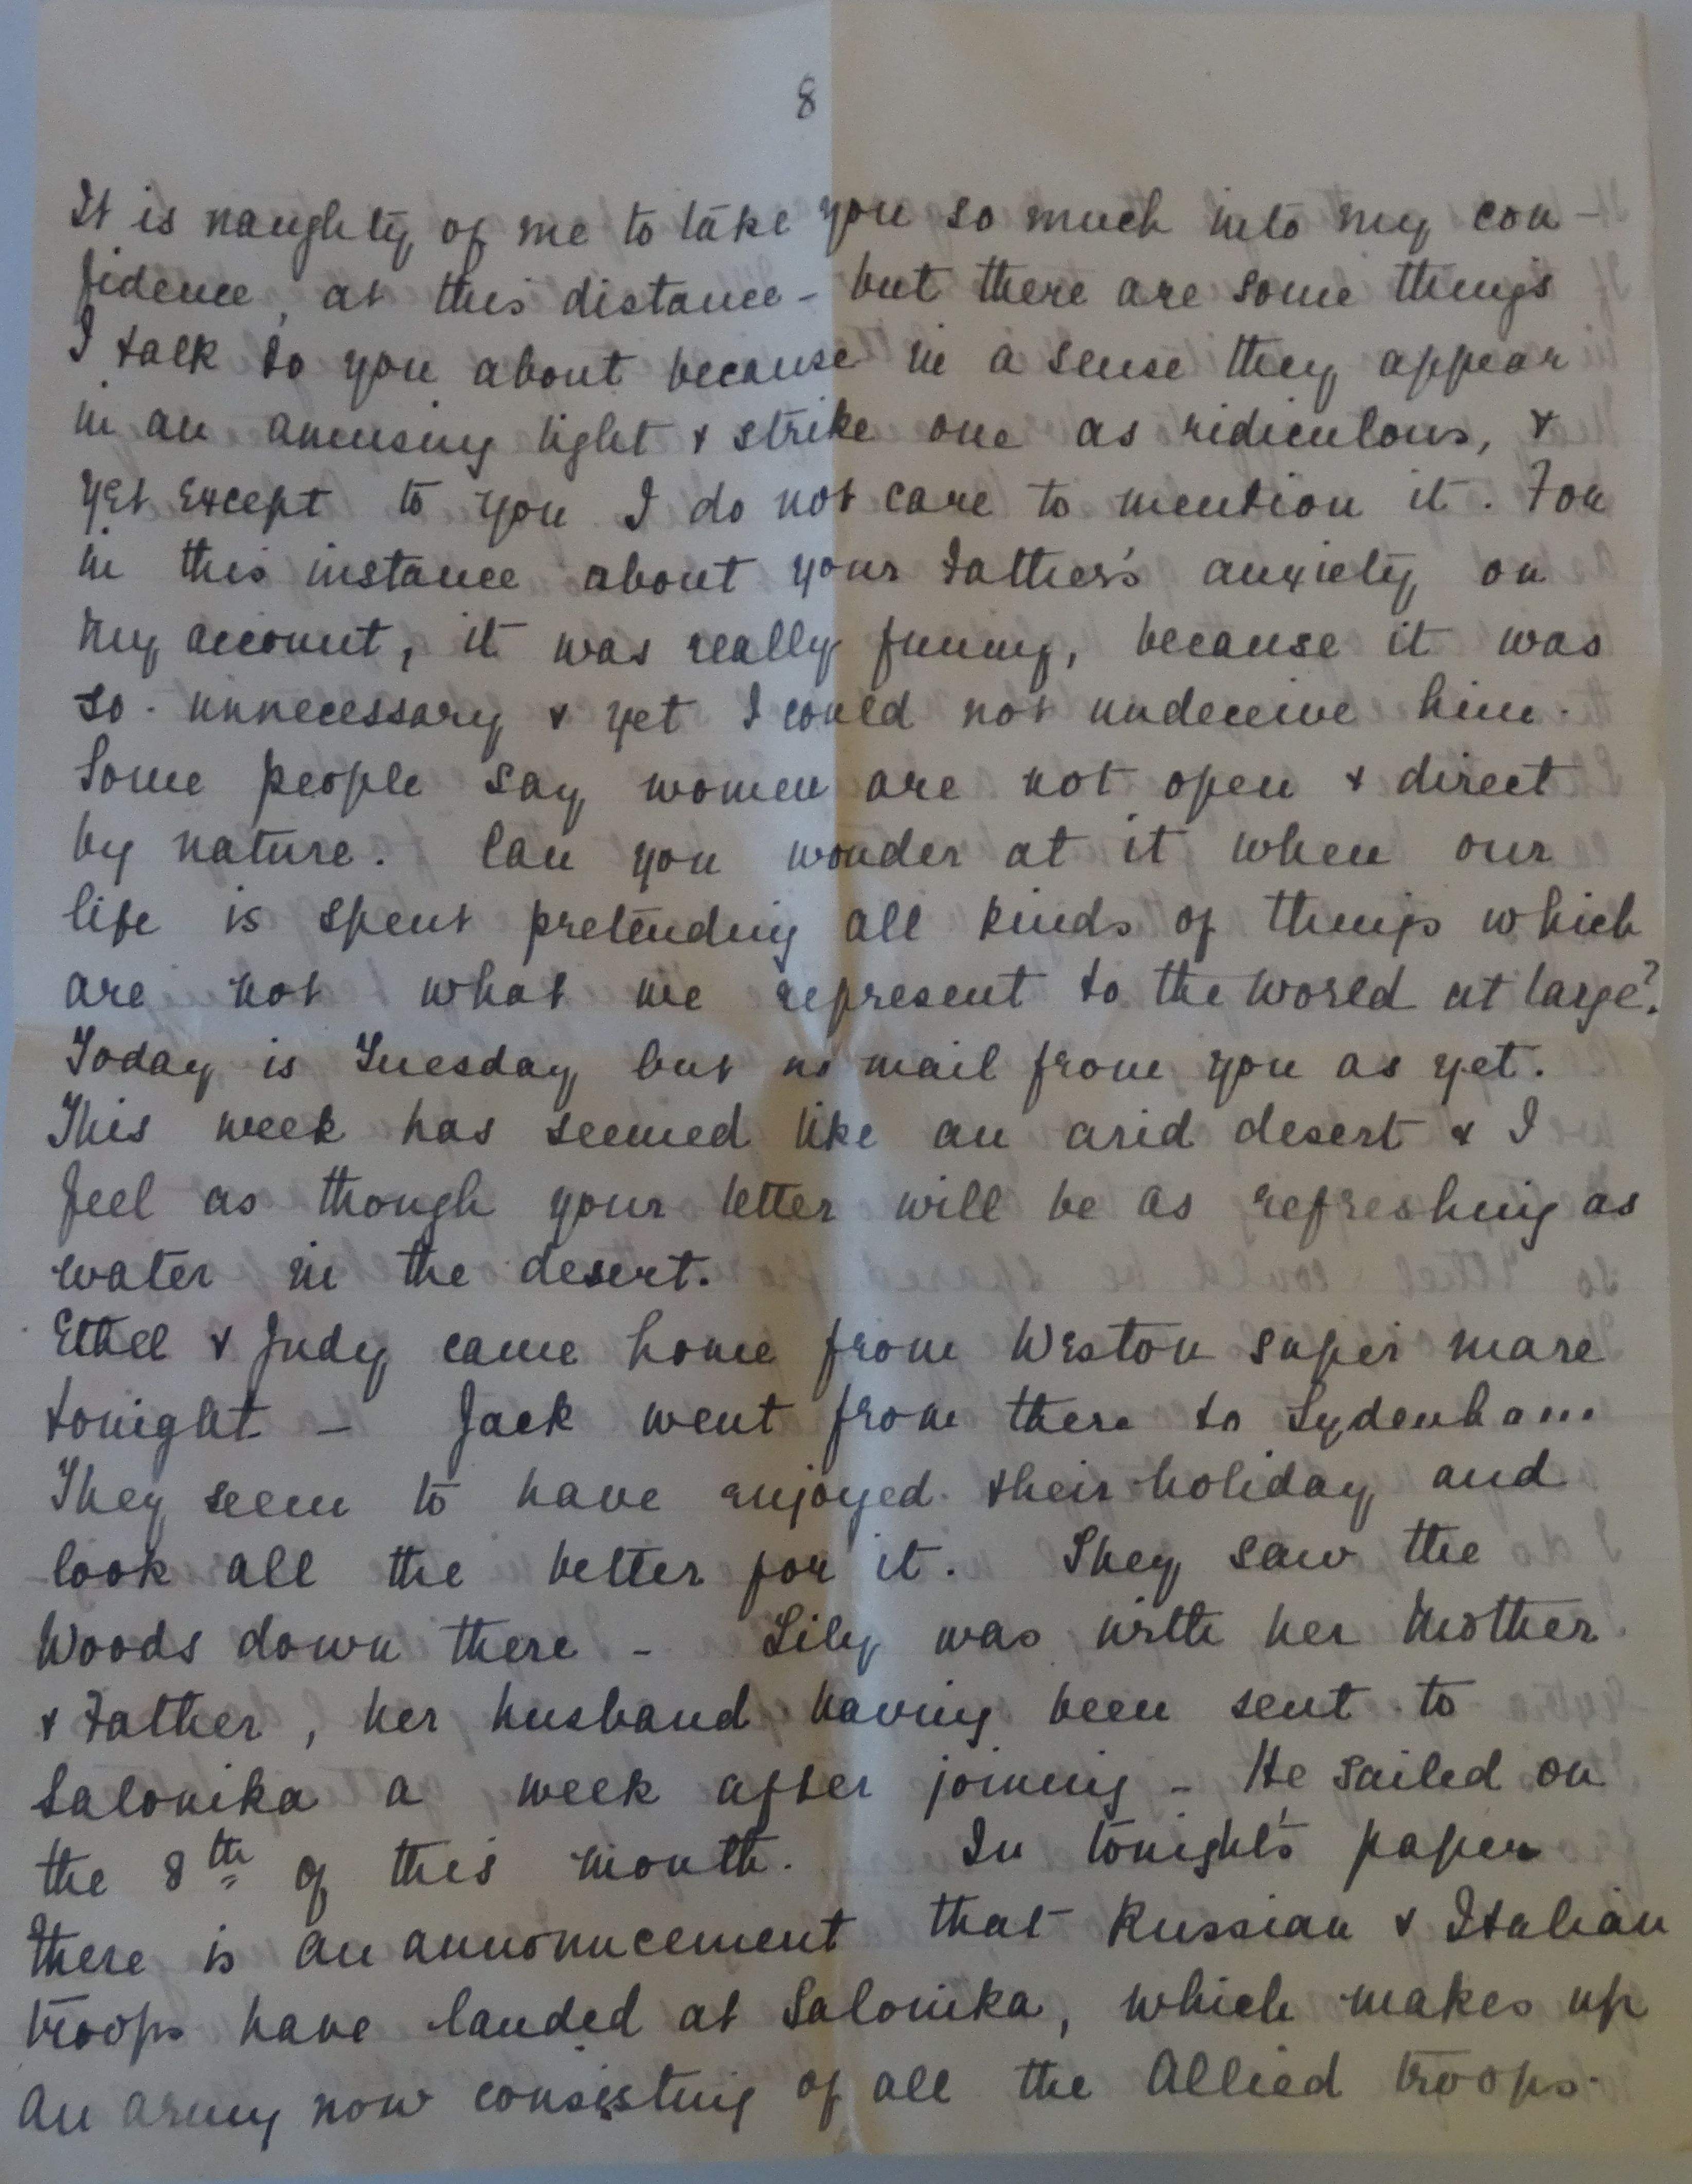 8
It is naughty of me to take you so much into my con-
fidence, at this distance - but there are some things
I talk to you about because in a sense they appear
in an amusing light & strike one as ridiculous, &
yet except to you I do not care to mention it. For
in this instance about your Father's anxiety on
my account, it was really funny, because it was
so unnecessary & yet I could not undeceive him.
Some people say women are not open & direct
by nature. Can you wonder at it when our
life is spent pretending all kinds of things which
are not what we represent to the world at large?
Today is Tuesday but no mail from you as yet.
This week has seemed like an arid desert & I
feel as though your letter will be as refreshing as
water in the desert.
Ethel & Judy came home from Weston super mare
tonight - Jack went from there to Sydenham
They seem to have enjoyed their holiday and
look all the better for it. They saw the
Woods down there - Lily was with her Mother
& Father, her husband having been sent to
Salonika a week after joining - He sailed on
the 8th of this month. In tonight's paper
there is an announcement that Russian & Italian
troops have landed at Salonika, which makes up
an army now consisting of all the Allied troops.